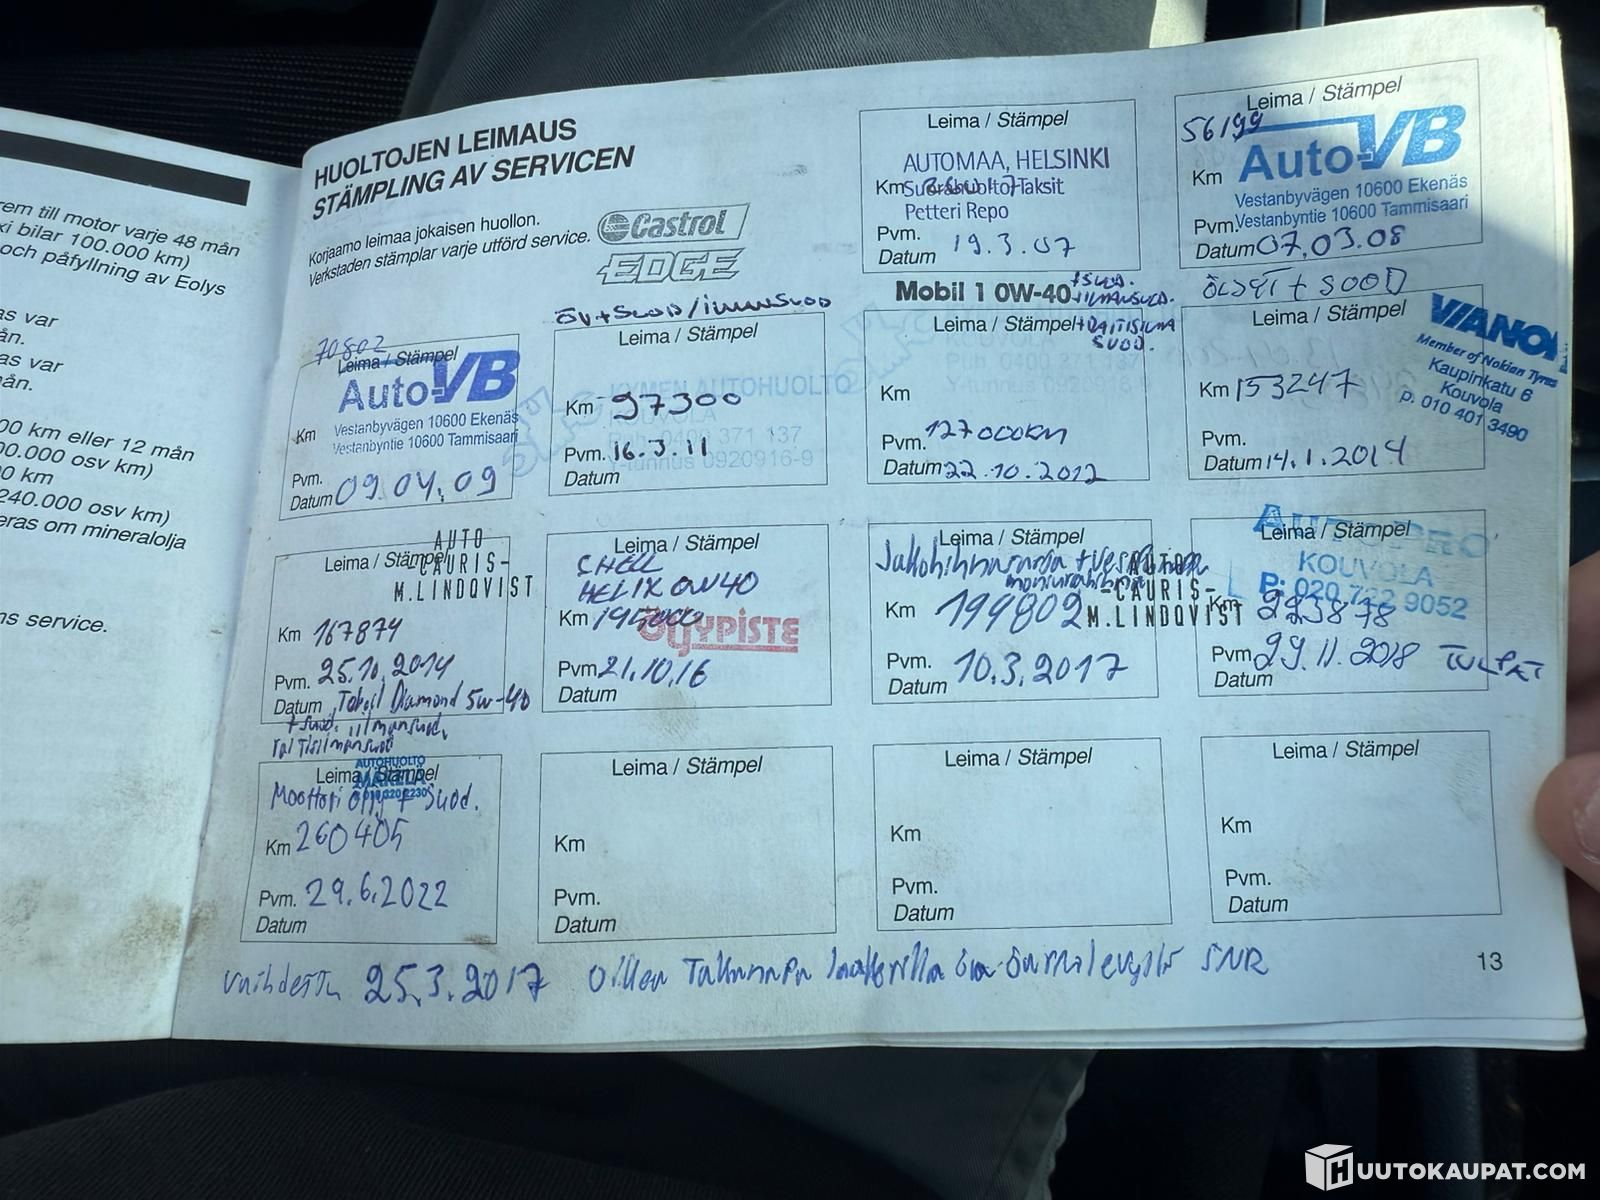 rem till motor varje 48 mån
xi bilar 100.000 km)
och påfyllning av Eolys
as var
ån.
as var
mån.
00 km eller 12 mån
0.000 osv km)
0 km
240.000 osv km)
eras om mineralolja
ns service.
HUOLTOJEN LEIMAUS
STÄMPLING AV SERVICEN
Korjaamo leimaa jokaisen huollon.
Verkstaden stämplar varje utförd service.
Castrol
EDGE
Leima / Stämpel
AUTOMAA, HELSINKI
Km
Suorahuolto/Taksit
Petteri Repo
Pvm.
Datum 19.3.07
Leima / Stämpel
56199
Auto-VB
Km
Vestanbyvägen 10600 Ekenäs
Vestanbyntie 10600 Tammisaari
Pvm.
Datum 07.03.08
70802
Leima / Stämpel
Auto-VB
Vestanbyvägen 10600 Ekenäs
Km
Vestanbyntie 10600 Tammisaari
Pvm.
Datum 09.04.09
Leima / Stämpel
KYMEN AUTOHUOLTO
KOUVOLA
Km 97300
Puh 0400 371 137
Pvm. 16.3.11
Y-tunnus 0920916-9
Datum
Mobil 1 0W-40
+SUOD.
+ILMANSUOD.
+RAITISILMA
SUOD.
Leima / Stämpel
KOUVOLA
Km
Pvm. 127000km
Datum 22.10.2012
ÖLJYT + SUOD
Leima / Stämpel
VIANOR
Member of Nokian Tyres
Kaupinkatu 6
Kouvola
p. 010 401 3490
Km 153247
Pvm.
Datum 14.1.2014
Leima / Stämpel
AUTO
-CAURIS-
M.LINDQVIST
Km 167874
Pvm. 25.10.2014
Datum
Diamond 5w-40
+ suod. ilmansuod.
Leima / Stämpel
SHELL
HELIX 0W40
Km 195000
ÖljYPISTE
Pvm 21.10.16
Datum
Leima / Stämpel
Jakohihnasarja +
AUTO
-CAURIS-
M.LINDQVIST
Km 199802
Pvm. 10.3.2017
Datum
Leima / Stämpel
AUTOPRO
KOUVOLA
P: 020 722 9052
Km 223878
Pvm 29.11.2018
Datum
Leima / Stämpel
AUTOHUOLTO
MÄKELÄ
Moottori öljy + Suod.
Km 260405
Pvm. 29.6.2022
Datum
Leima / Stämpel
Km
Pvm.
Datum
Leima / Stämpel
Km
Pvm.
Datum
Leima / Stämpel
Km
Pvm.
Datum
vaihdettu 25.3.2017 Oikea Takanapa laakerilla SNR
13
HUUTOKAUPAT.COM